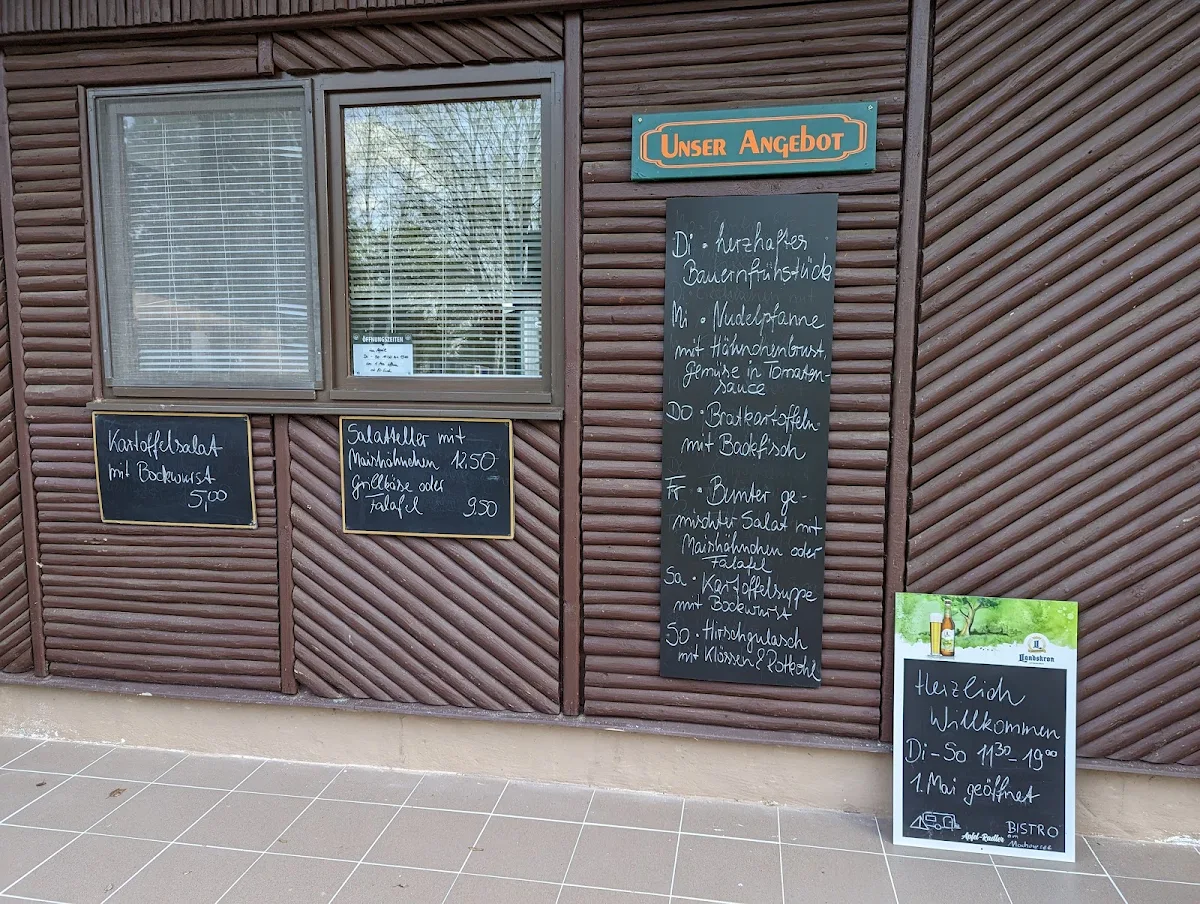 Unser Angebot
Di • herzhaftes
Bauernfrühstück
Mi • Nudelpfanne
mit Hähnchenbrust,
gemüse in Tomaten-
sauce
DO • Bratkartoffeln
mit Backfisch
Fr • Bunter ge-
mischter Salat mit
Maishähnchen oder
Falafel
Sa • Kartoffelsuppe
mit Bockwurst
SO • Hirschgulasch
mit Klössen & Rotkohl
ÖFFNUNGSZEITEN
Kartoffelsalat
mit Bockwurst
5,00
Salatteller mit
Maishähnchen 12,50
grillkäse oder
Falafel 9,50
Landskron
Herzlich
Willkommen
Di - So 11³⁰ - 19⁰⁰
1. Mai geöffnet
Apfel-Radler
BISTRO
am